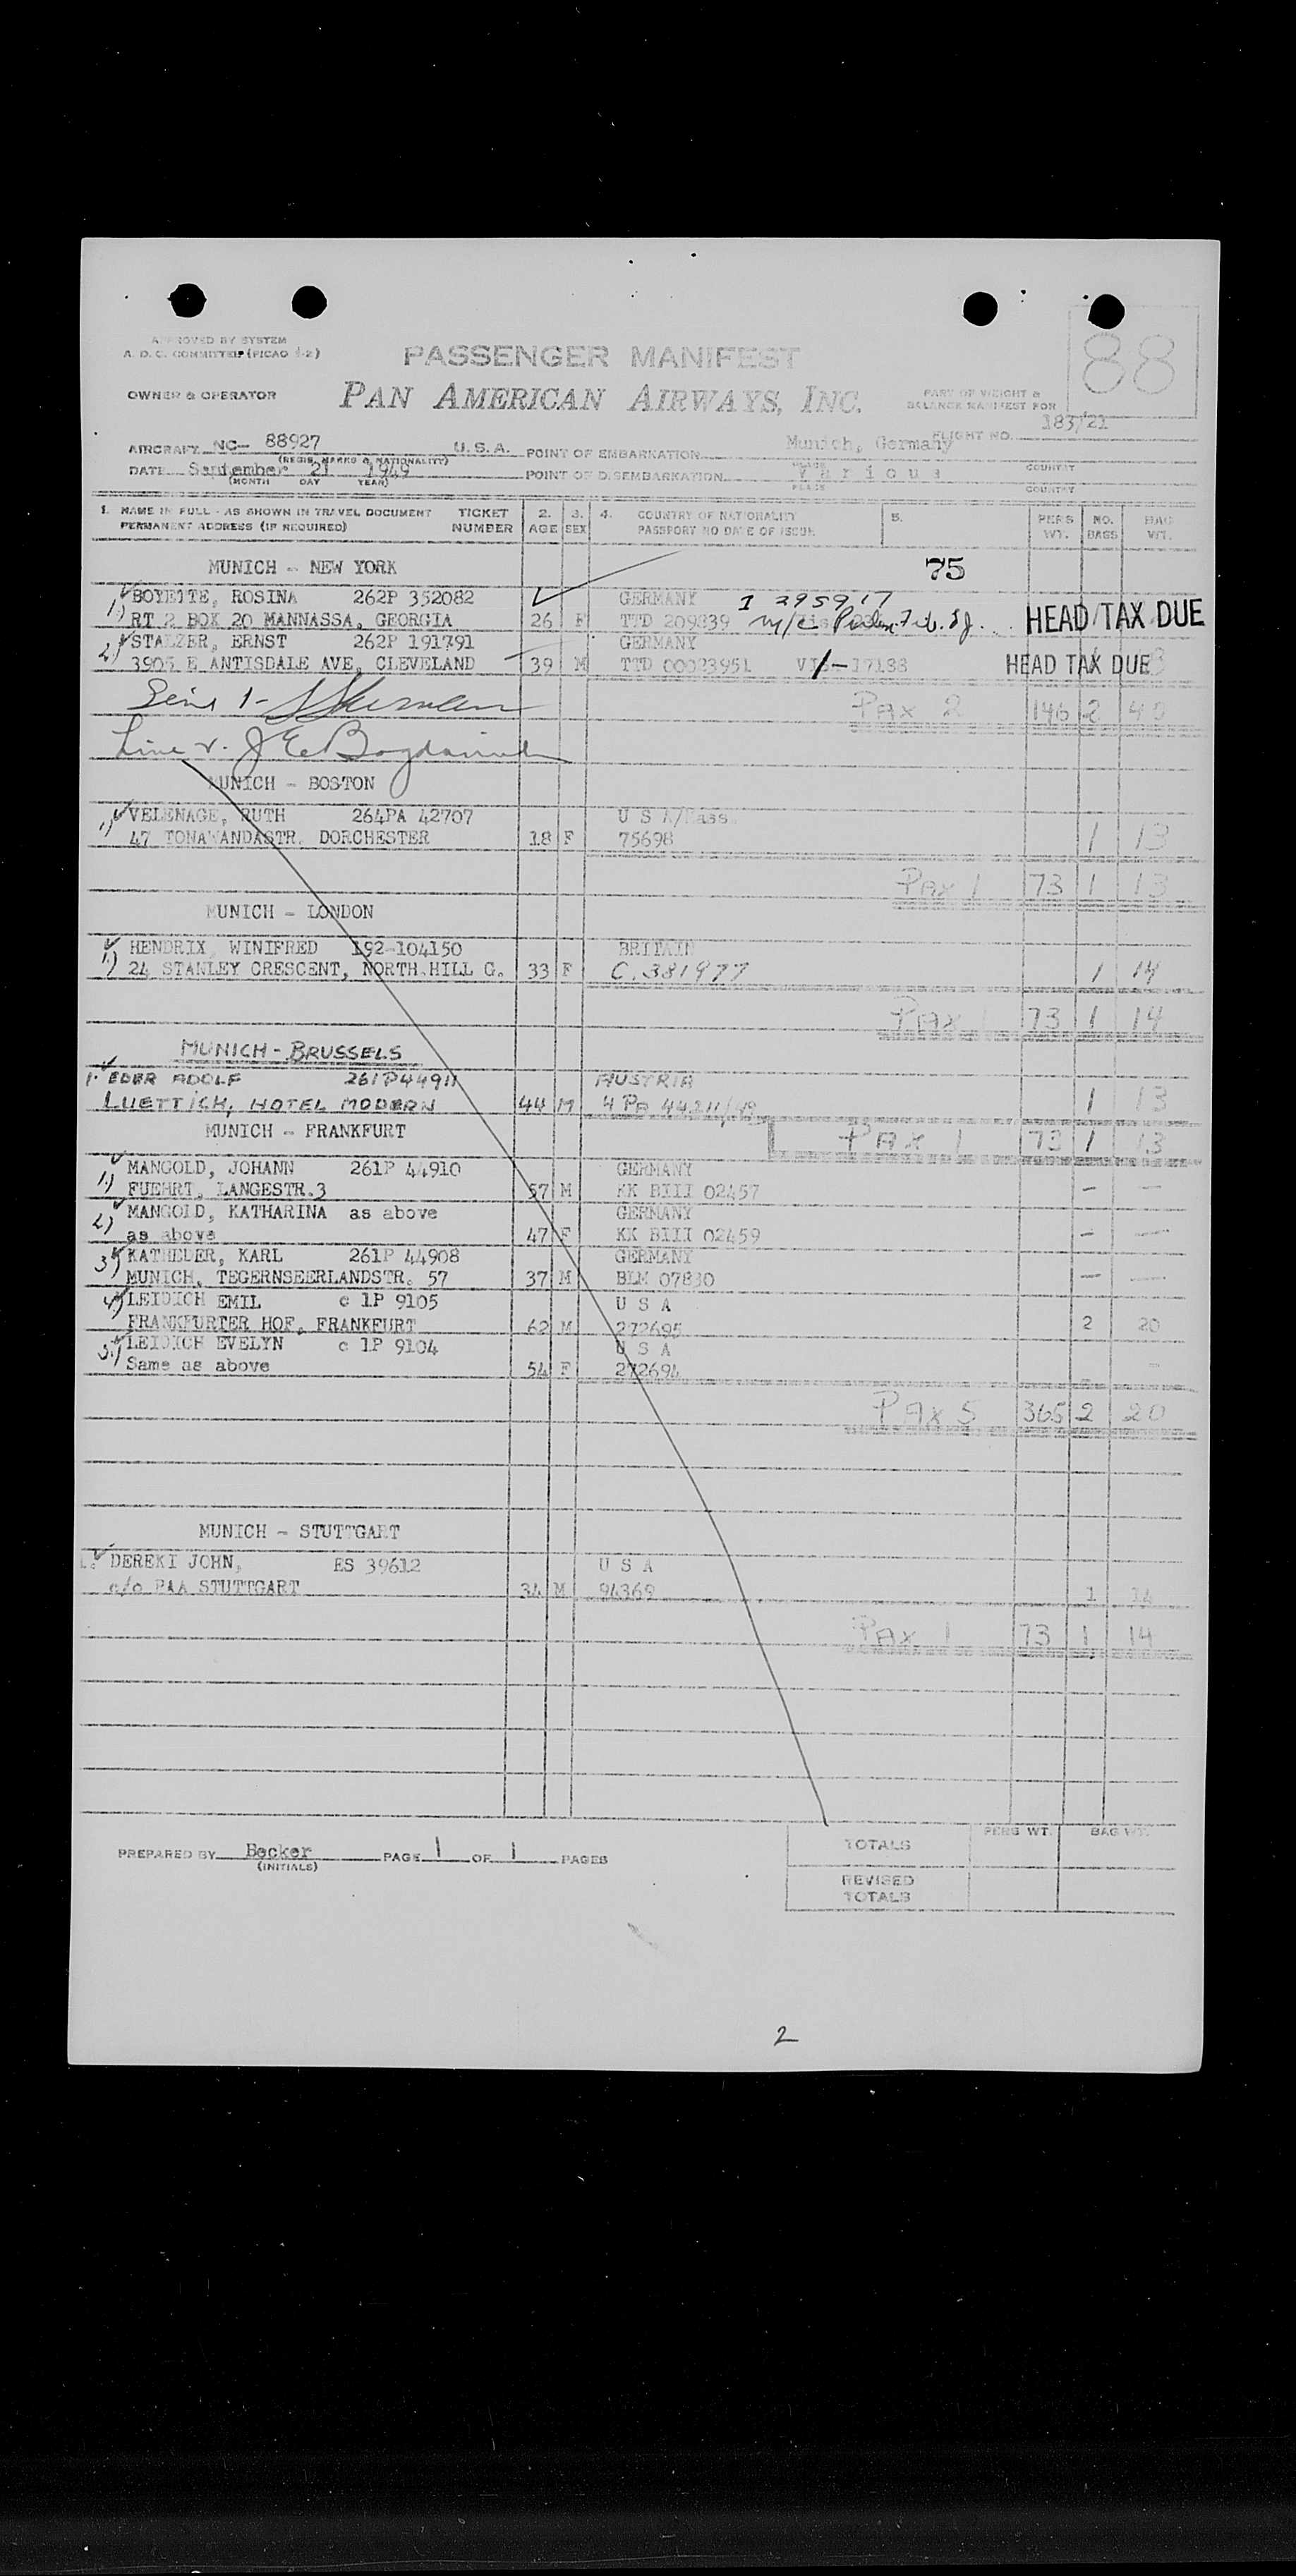 APPROVED BY SYSTEM
A. D. C. COMMITTEE (PICAO 1-2)
PASSENGER MANIFEST
88
OWNER & OPERATOR
PAN AMERICAN AIRWAYS, INC.
PART OF WEIGHT &
BALANCE MANIFEST FOR
FLIGHT NO. 183/21
AIRCRAFT NC- 88927 U.S.A. POINT OF EMBARKATION Munich, Germany
(REGIS. MARKS & NATIONALITY) PLACE COUNTRY
DATE September 21 1949 POINT OF DISEMBARKATION Various
(MONTH DAY YEAR) PLACE COUNTRY
1. NAME IN FULL - AS SHOWN IN TRAVEL DOCUMENT TICKET 2. 3. 4. COUNTRY OF NATIONALITY 5. PERS NO. BAG
PERMANENT ADDRESS (IF REQUIRED) NUMBER AGE SEX PASSPORT NO DATE OF ISSUE WT. BAGS WT.
MUNICH - NEW YORK 75
BOYETTE, ROSINA 262P 352082 GERMANY I 395917
1.) RT 2 BOX 20 MANNASSA, GEORGIA 26 F TTD 209839 HEAD TAX DUE
STALZER, ERNST 262P 191791 GERMANY
2) 3905 E ANTISDALE AVE, CLEVELAND 39 M TTD 00023951 HEAD TAX DUE
PAX 2 146 2 40
MUNICH - BOSTON
VELENAGE, RUTH 264PA 42707 U S A/Mass.
1) 47 TONAWANDASTR. DORCHESTER 18 F 75698 1 13
PAX 1 73 1 13
MUNICH - LONDON
HENDRIX, WINIFRED 192-104150 BRITAIN
1.) 24 STANLEY CRESCENT, NORTH.HILL G. 33 F C. 381977 1 14
PAX 1 73 1 14
MUNICH - BRUSSELS
1. EDER ADOLF 261P44911 AUSTRIA
LUETTICH, HOTEL MODERN 44 M 4 Pa 44211/49 1 13
MUNICH - FRANKFURT PAX 1 73 1 13
MANGOLD, JOHANN 261P 44910 GERMANY
1.) FUEHRT, LANGESTR.3 57 M KK BIII 02457 - -
MANGOLD, KATHARINA as above GERMANY
2) as above 47 F KK BIII 02459 - -
KATHEDER, KARL 261P 44908 GERMANY
3.) MUNICH, TEGERNSEERLANDSTR. 57 37 M BLM 07830 - -
LEIDICH EMIL c 1P 9105 U S A
4.) FRANKFURTER HOF, FRANKFURT 62 M 272695 2 20
LEIDICH EVELYN c 1P 9104 U S A
5.) Same as above 54 F 272694 -
PAX 5 365 2 20
MUNICH - STUTTGART
DEREKI JOHN, ES 39612 U S A
c/o PAA STUTTGART 34 M 94369 1 14
PAX 1 73 1 14
TOTALS PERS WT. BAG WT.
PREPARED BY Becker PAGE 1 OF 1 PAGES
(INITIALS)
REVISED
TOTALS
2